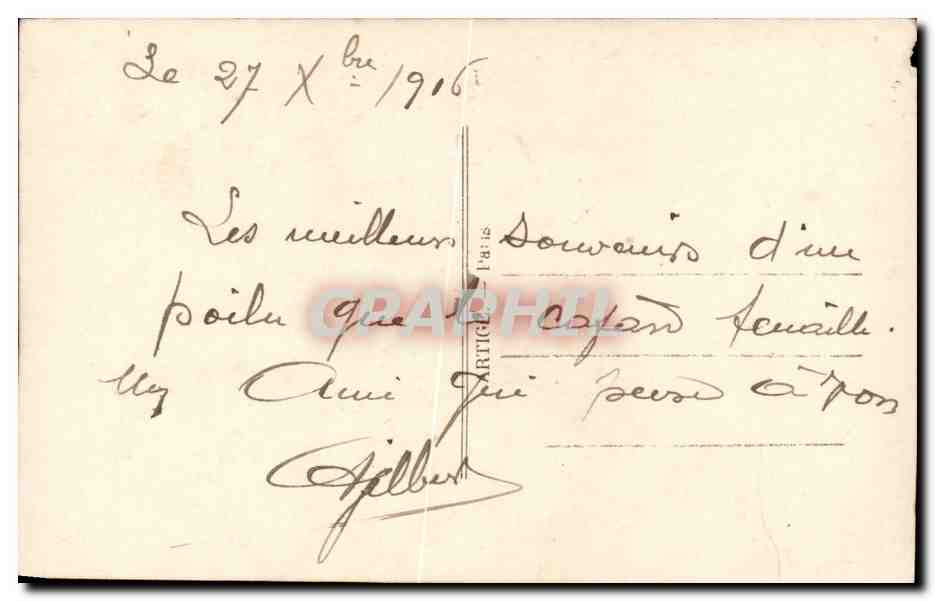 Le 27 Xbre 1916
Les meilleurs souvenirs d'un
poilu que le cafard tenaille.
Un Ami qui pense à vous
Gilbert
ARTIGE Paris
GRAPHIL